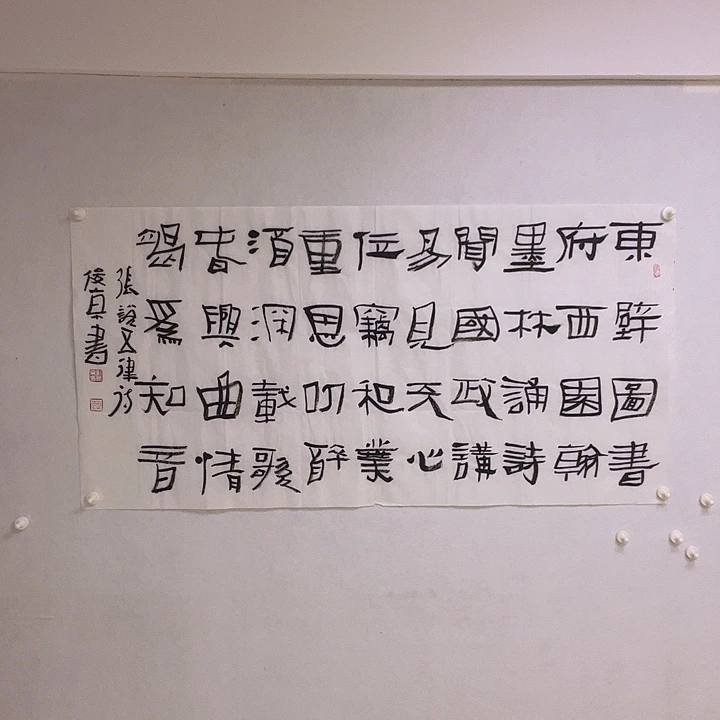 東壁圖書
府西園翰
墨林誦詩
聞國政講
易見天心
位竊和羹
重恩叨醉
酒深載歌
春興曲情
竭爲知音
張說五律詩
書